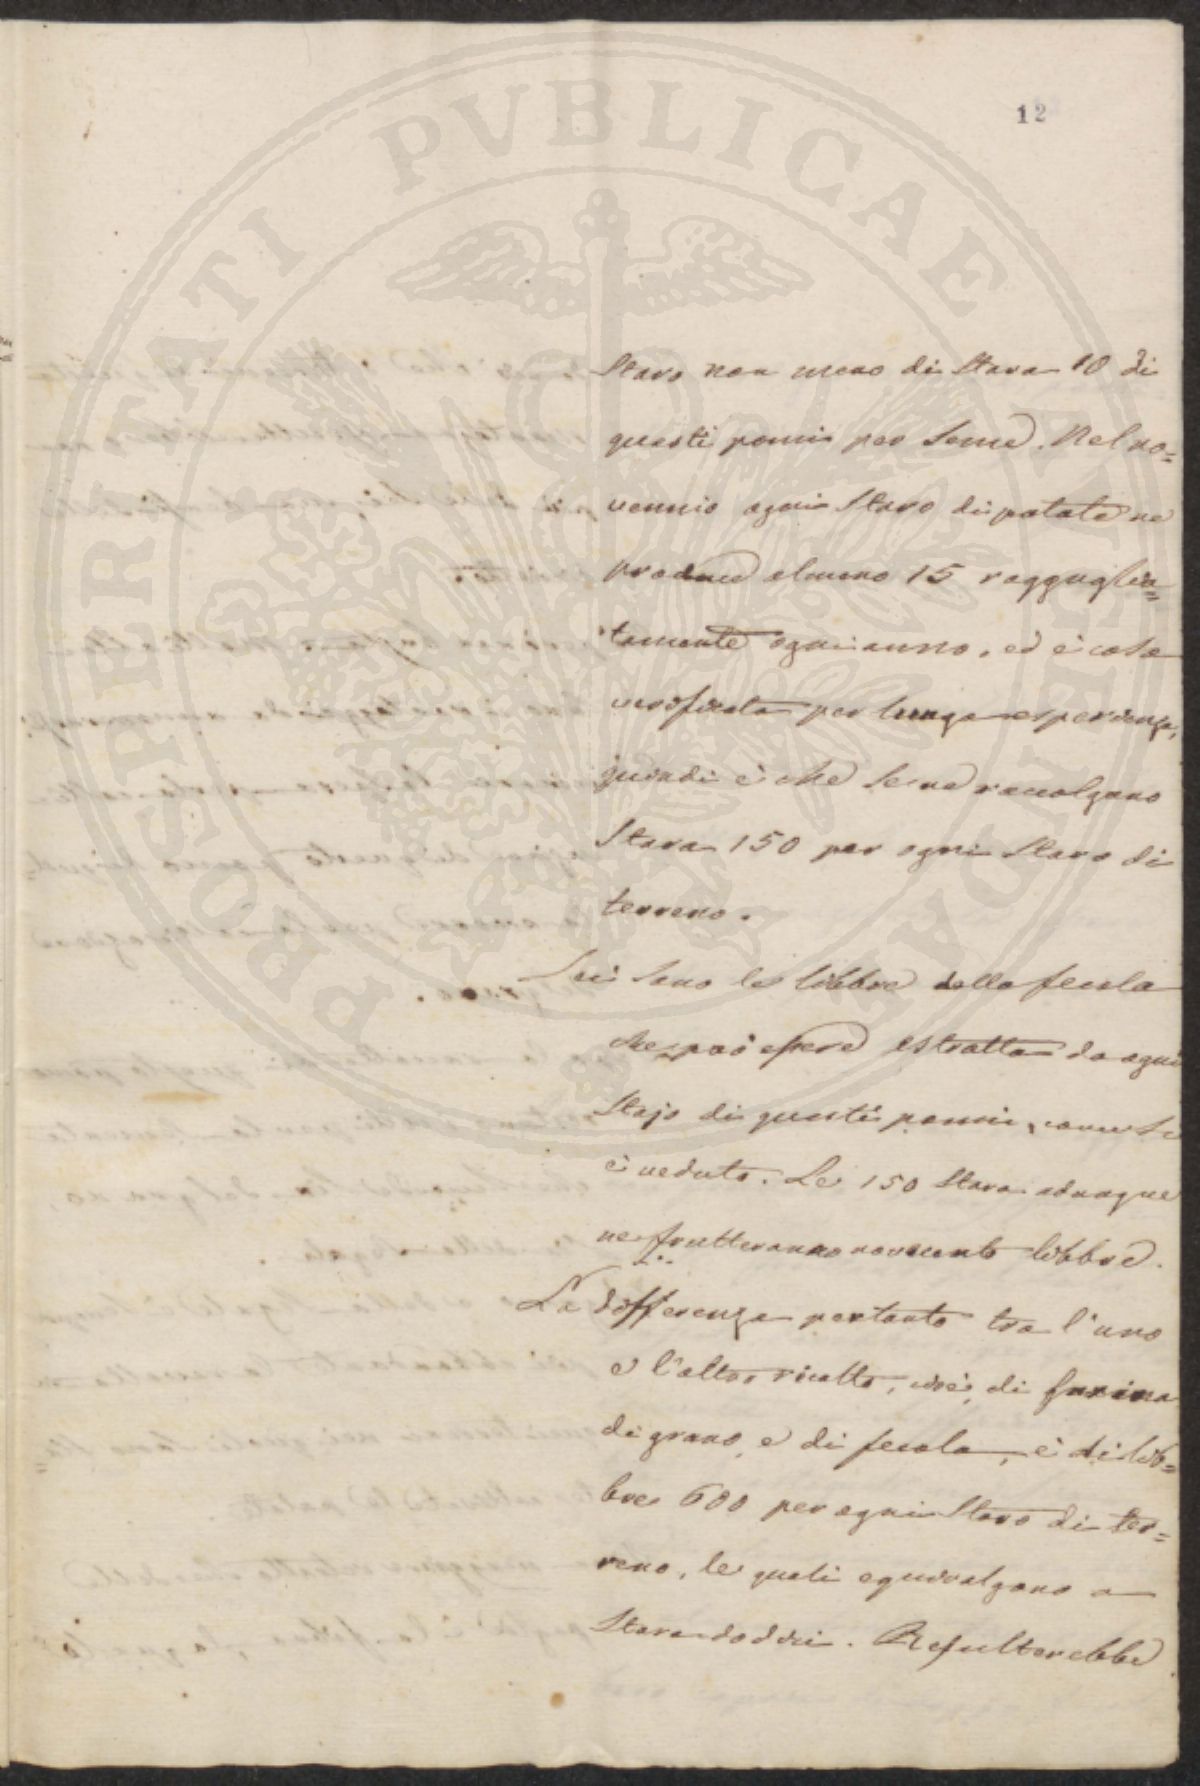 12
PROSPERITATI PVBLICAE AVGENDAE
Staro non meno di Stara 10 di
questi pomi per seme. Nel no=
vennio ogni Staro di patate ne
produce almeno 15 ragguglia=
tamente ogni anno, ed è cosa
verificata per lunga esperienza,
quindi è che se ne raccolgano
Stara 150 per ogni Staro di
terreno.
Sei sono le libbre della fecola
che può essere estratta da ogni
Stajo di questi pomi, come si
è veduto. Le 150 Stara adunque
ne frutteranno novecento libbre.
La differenza pertanto tra l'uno
e l'altro ricolto, cioè, di farina
di grano, e di fecola, è di lib=
bre 600 per ogni Staro di ter=
reno, le quali equivalgono a
Stara dodici. Risulterebbe